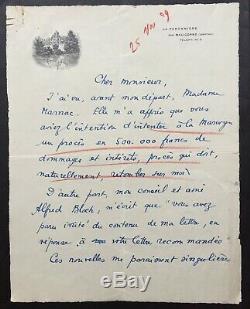 LA FERRONNIERE
PAR MALICORNE (SARTHE)
25 Mai 39
Cher Monsieur,
J'ai vu, avant mon départ, Madame
Marnac. Elle m'a appris que vous
aviez l'intention d'intenter à la
un procès en 500.000 francs de
dommages et intérêts, procès qui doit,
naturellement, retomber sur moi
D'autre part, mon conseil et ami
Alfred Bloch, m'écrit que "vous avez
paru irrité" du contenu de ma lettre, en
réponse à votre lettre recommandée
Ces nouvelles me paraissent singulières